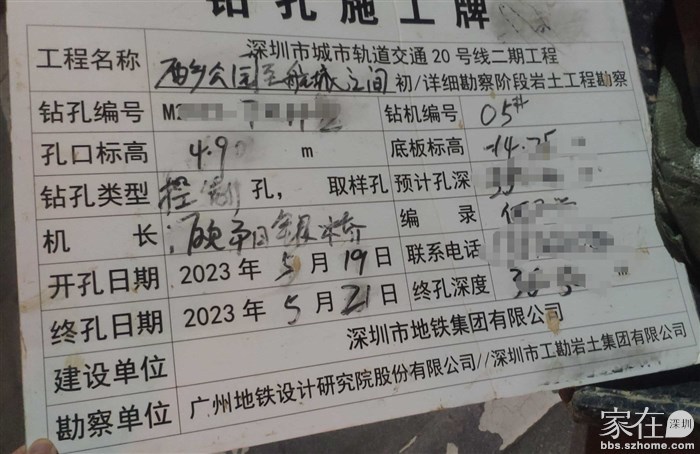 钻孔施工牌
工程名称 深圳市城市轨道交通20号线二期工程
西乡公园至航城之间 初/详细勘察阶段岩土工程勘察
钻孔编号 M2 钻机编号 05#
孔口标高 4.9 m 底板标高 -14.75
钻孔类型 控制 孔, 取样孔 预计孔深
机 长 : 编 录
开孔日期 2023 年 5 月 19 日 联系电话
终孔日期 2023 年 5 月 21 日 终孔深度 m
建设单位 深圳市地铁集团有限公司
勘察单位 广州地铁设计研究院股份有限公司//深圳市工勘岩土集团有限公司
家在深圳
bbs.szhome.com